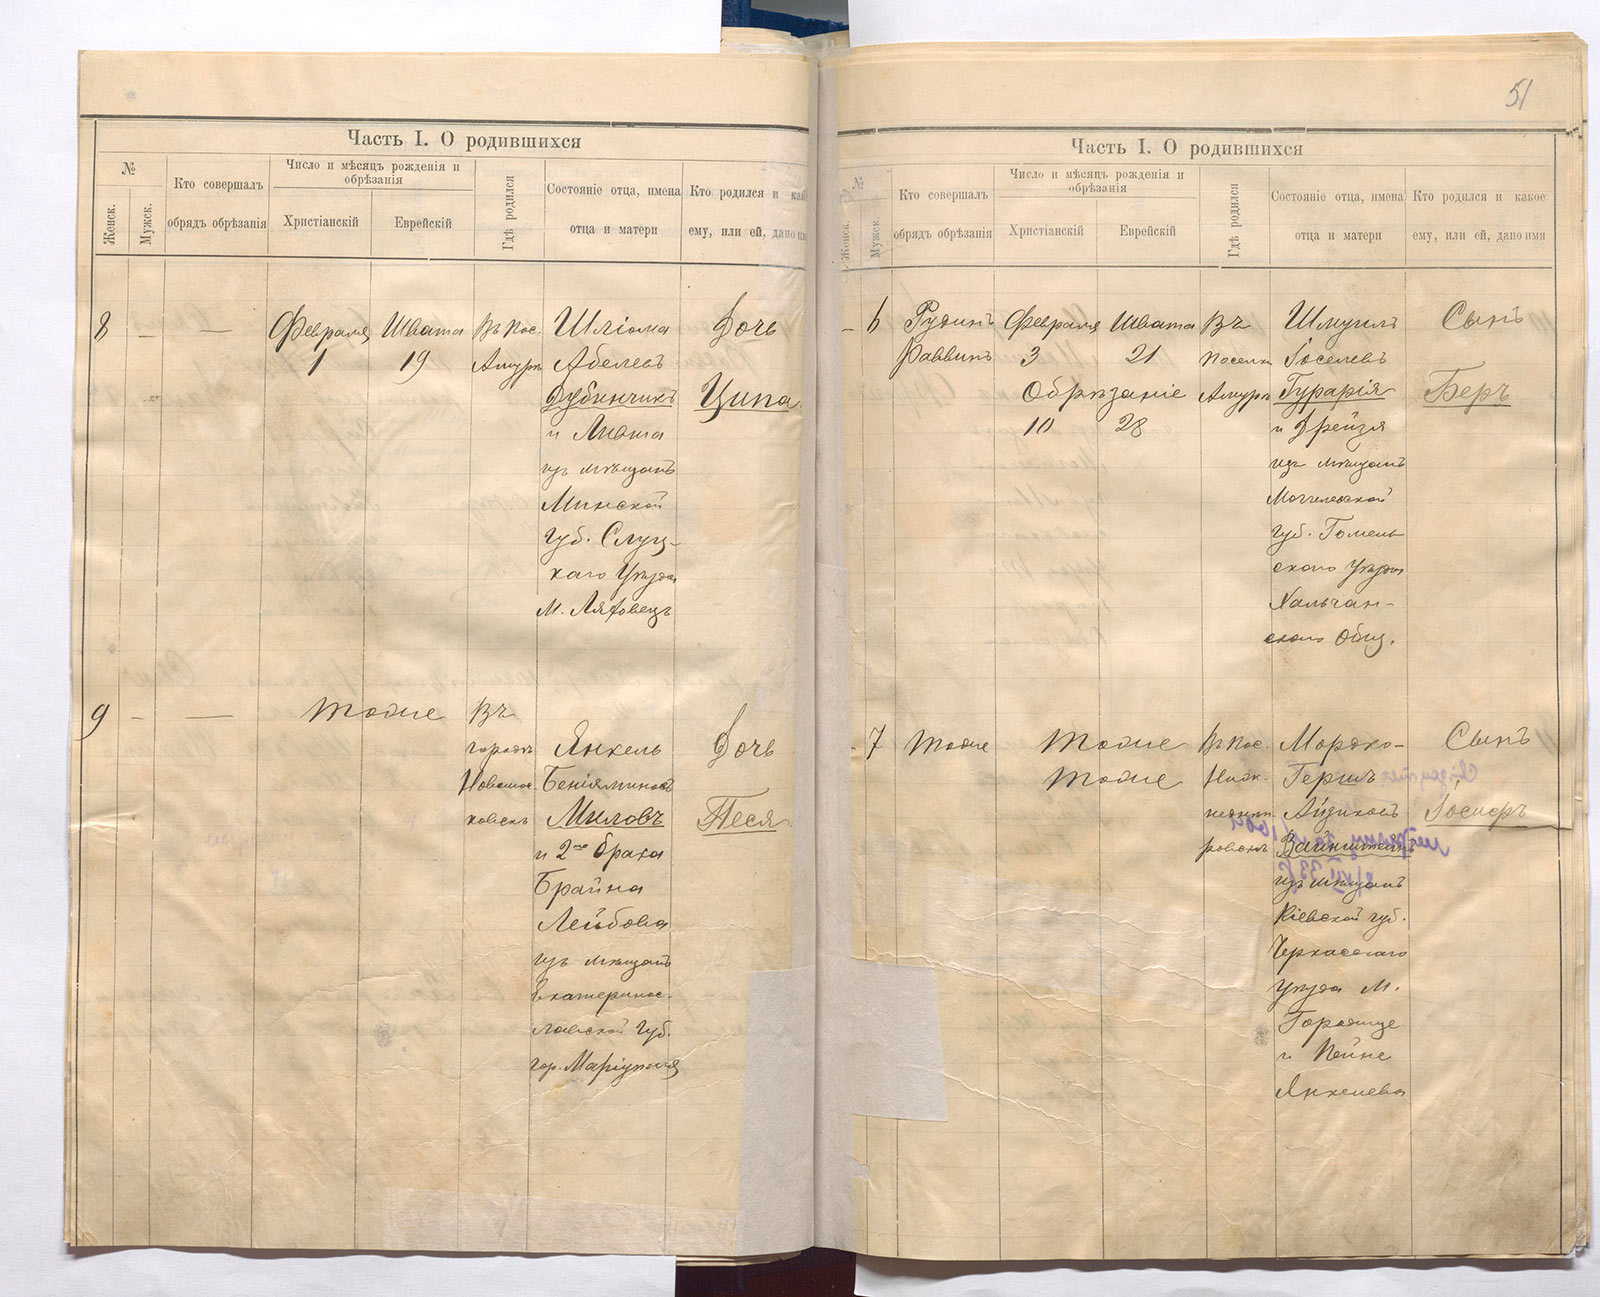 51
Часть I. О родившихся
№
Женск.
Мужск.
Кто совершалъ
обрядъ обрѣзанія
Число и мѣсяцъ рожденія и
обрѣзанія
Христіанскій
Еврейскій
Гдѣ родился
Состояніе отца, имена
отца и матери
Кто родился и как
ему, или ей, дано им
8
Февраля
1
Швата
19
Въ Пос.
Амуръ
Шліома
Абелевъ
Дубинчикъ
и Лиота
изъ мѣщанъ
Минской
губ. Слуц-
каго Уѣзда
м. Ляховецъ
Дочь
Ципа
9
тоже
Въ
городѣ
Новомос-
ковскъ
Янкель
Беніяминовъ
Миловъ
и 2го брака
Брайна
Лейбова
изъ мѣщанъ
Екатеринос-
лавской губ.
гор. Маріуполя
Дочь
Песя
Часть I. О родившихся
№
Женск.
Мужск.
Кто совершалъ
обрядъ обрѣзанія
Число и мѣсяцъ рожденія и
обрѣзанія
Христіанскій
Еврейскій
Гдѣ родился
Состояніе отца, имена
отца и матери
Кто родился и какое
ему, или ей, дано имя
6
Рудинъ
Раввинъ
Февраля
3
Швата
21
Обрѣзаніе
10
28
Въ
поселкѣ
Амуръ
Шмуилъ
Іоселевъ
Гурарія
и Дрейзя
изъ мѣщанъ
Могилевской
губ. Гомель-
скаго Уѣзда
Хальчан-
скаго Общ.
Сынъ
Беръ
7
тоже
тоже
тоже
Въ Пос.
Нижн-
неднѣп-
ровскъ
Мордко-
Гершъ
Айзиковъ
Вайнштейнъ
изъ мѣщанъ
Кіевской губ.
Черкасскаго
уѣзда м.
Городище
и Пейне
Янкелева
Сынъ
Іосифъ